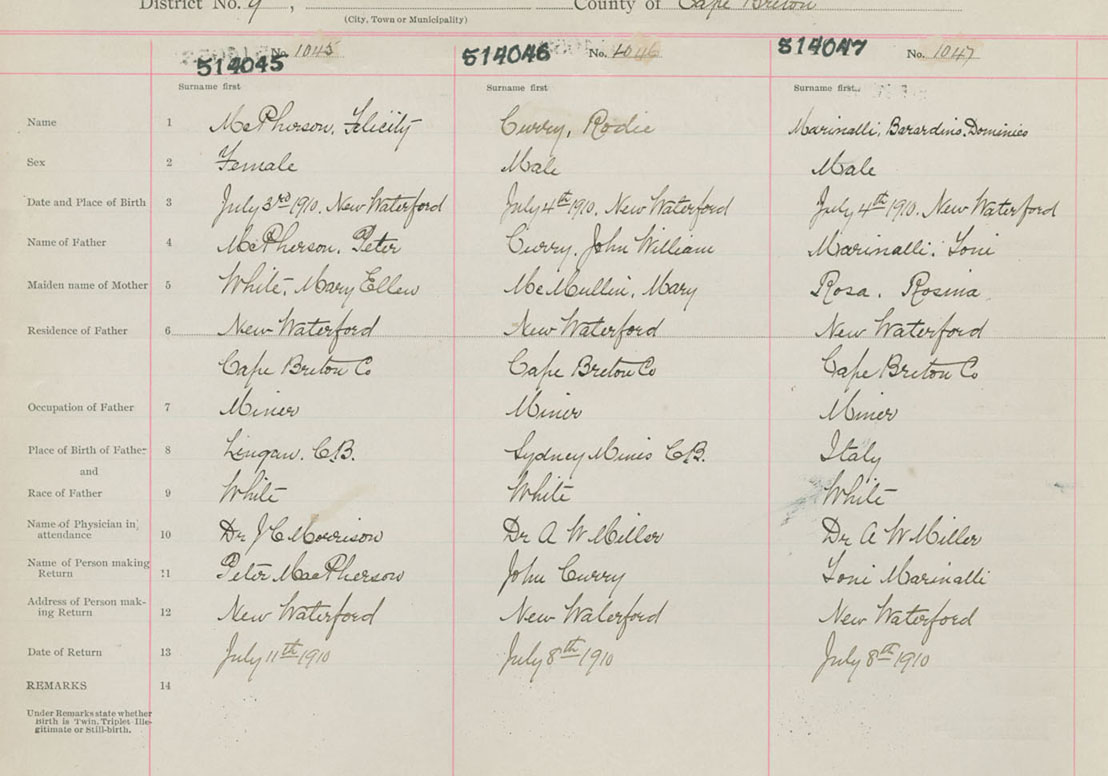 District No. 9, County of Cape Breton
(City, Town or Municipality)
No. 1045 No. 1046 No. 1047
514045 514046 514047
Surname first Surname first Surname first
Name 1 McPherson, Felicity Curry, Rodie Marinalli, Barardino, Dominico
Sex 2 Female Male Male
Date and Place of Birth 3 July 3rd 1910. New Waterford July 4th 1910. New Waterford July 4th 1910. New Waterford
Name of Father 4 McPherson, Peter Curry, John William Marinalli, Toni
Maiden name of Mother 5 White, Mary Ellen McMullin, Mary Rosa, Rosina
Residence of Father 6 New Waterford New Waterford New Waterford
Cape Breton Co Cape Breton Co Cape Breton Co
Occupation of Father 7 Miner Miner Miner
Place of Birth of Father 8 Lingan, C.B. Sydney Mines C.B. Italy
and
Race of Father 9 White White White
Name of Physician in
attendance 10 Dr J C Morrison Dr A W Miller Dr A W Miller
Name of Person making
Return 11 Peter MacPherson John Curry Toni Marinalli
Address of Person mak-
ing Return 12 New Waterford New Waterford New Waterford
Date of Return 13 July 11th 1910 July 8th 1910 July 8th 1910
REMARKS 14
Under Remarks state whether
Birth is Twin, Triplet Ille-
gitimate or Still-birth.